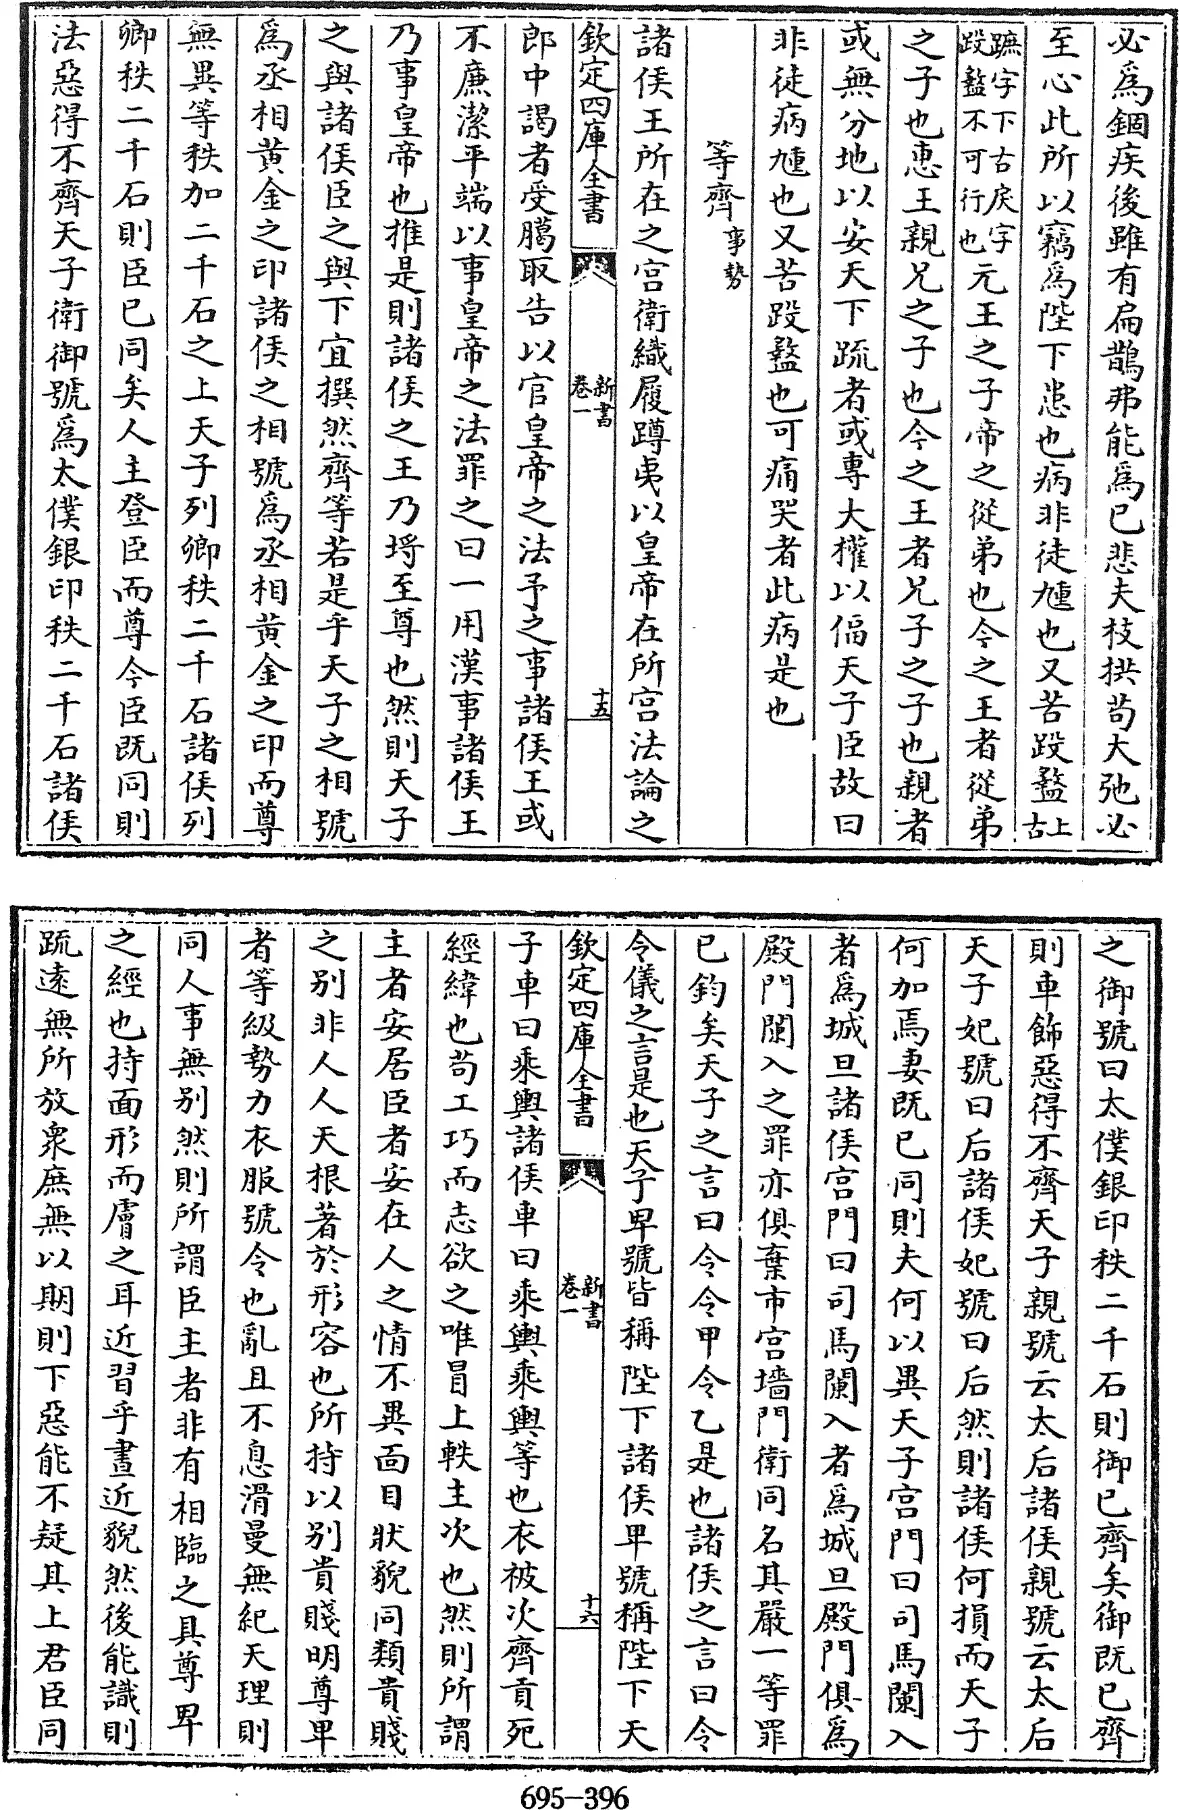 必為錮疾後雖有扁鵲弗能為已悲夫枝拱苟大弛必
至心此所以竊為陛下患也病非徒尰也又苦䟦盭上古
蹠字下古戾字䟦盭不可行也元王之子帝之從弟也今之王者從弟
之子也惠王親兄之子也今之王者兄子之子也親者
或無分地以安天下疏者或專大權以偪天子臣故曰
非徒病尰也又苦䟦盭也可痛哭者此病是也
等齊事勢
諸侯王所在之宫衛織履蹲夷以皇帝在所宫法論之
欽定四庫全書
新書
卷一
十五
郎中謁者受謁取告以官皇帝之法予之事諸侯王或
不廉潔平端以事皇帝之法罪之曰一用漢事諸侯王
乃事皇帝也推是則諸侯之王乃埓至尊也然則天子
之與諸侯臣之與下宜撰然齊等若是乎天子之相號
為丞相黄金之印諸侯之相號為丞相黄金之印而尊
無異等秩加二千石之上天子列卿秩二千石諸侯列
卿秩二千石則臣已同矣人主登臣而尊今臣既同則
法惡得不齊天子衛御號為太僕銀印秩二千石諸侯
之御號曰太僕銀印秩二千石則御已齊矣御既已齊
則車飾惡得不齊天子親號云太后諸侯親號云太后
天子妃號曰后諸侯妃號曰后然則諸侯何損而天子
何加焉妻既已同則夫何以異天子宫門曰司馬闌入
者為城旦諸侯宫門曰司馬闌入者為城旦殿門俱為
殿門闌入之罪亦俱棄市宫墻門衛同名其嚴一等罪
已鈞矣天子之言曰令令甲令乙是也諸侯之言曰令
令儀之言是也天子卑號皆稱陛下諸侯卑號稱陛下天
欽定四庫全書
新書
卷一
十六
子車曰乘輿諸侯車曰乘輿乘輿等也衣被次齊貢死
經緯也苟工巧而志欲之唯冒上軼主次也然則所謂
主者安居臣者安在人之情不異面目狀貌同類貴賤
之别非人人天根著於形容也所持以别貴賤明尊卑
者等級勢力衣服號令也亂且不息滑曼無紀天理則
同人事無别然則所謂臣主者非有相臨之具尊卑
之經也持面形而膚之耳近習乎晝近貌然後能識則
疏逺無所放衆庶無以期則下惡能不疑其上君臣同
695-396